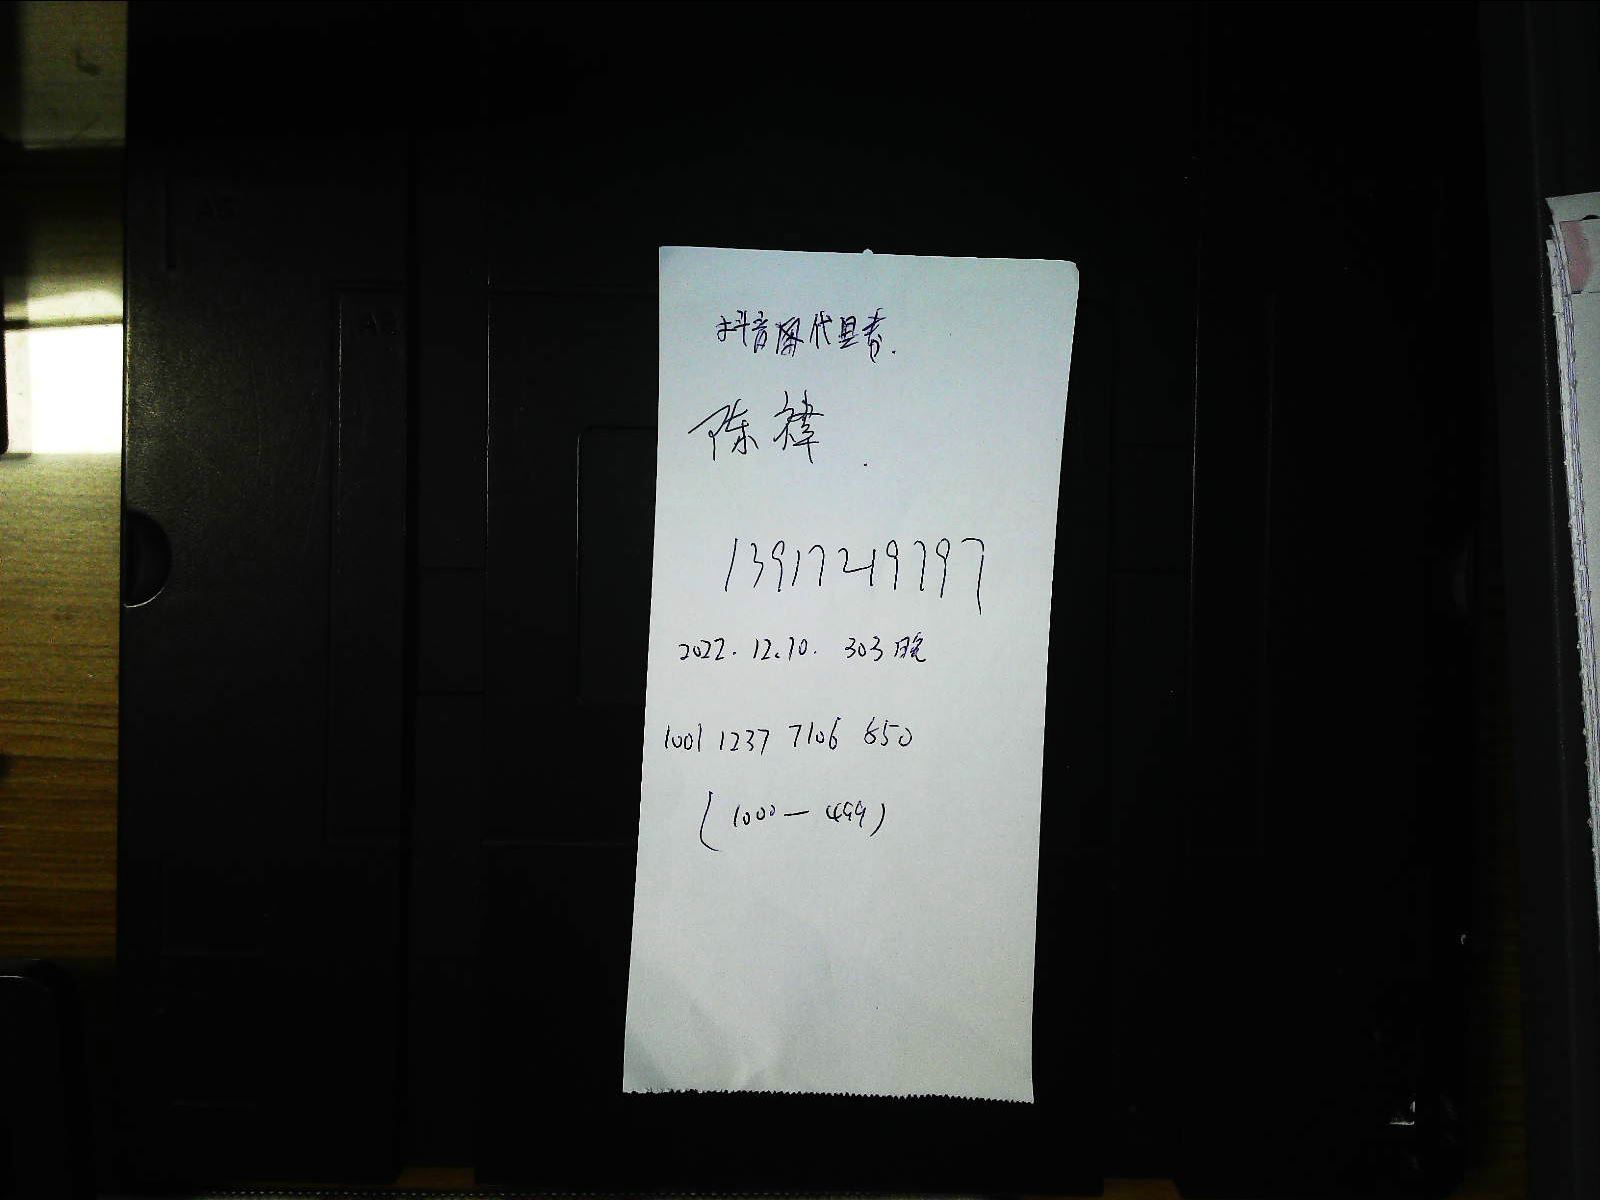 抖音团代里券.
陈禕.
13917249797
2022.12.10. 303晚
1001 1237 7106 650
(1000—499)
A5